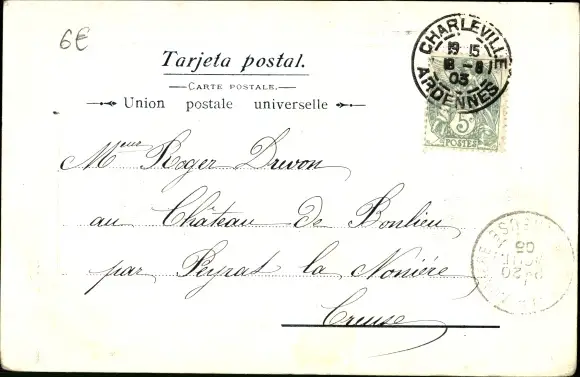 6€
Tarjeta postal.
CARTE POSTALE.
Union postale universelle
CHARLEVILLE
19 15
8 -8
03
ARDENNES
5c
POSTES
Mr Roger Drevon
au Château de Bonlieu
par Peyrat la Nonière
Creuse
20
03